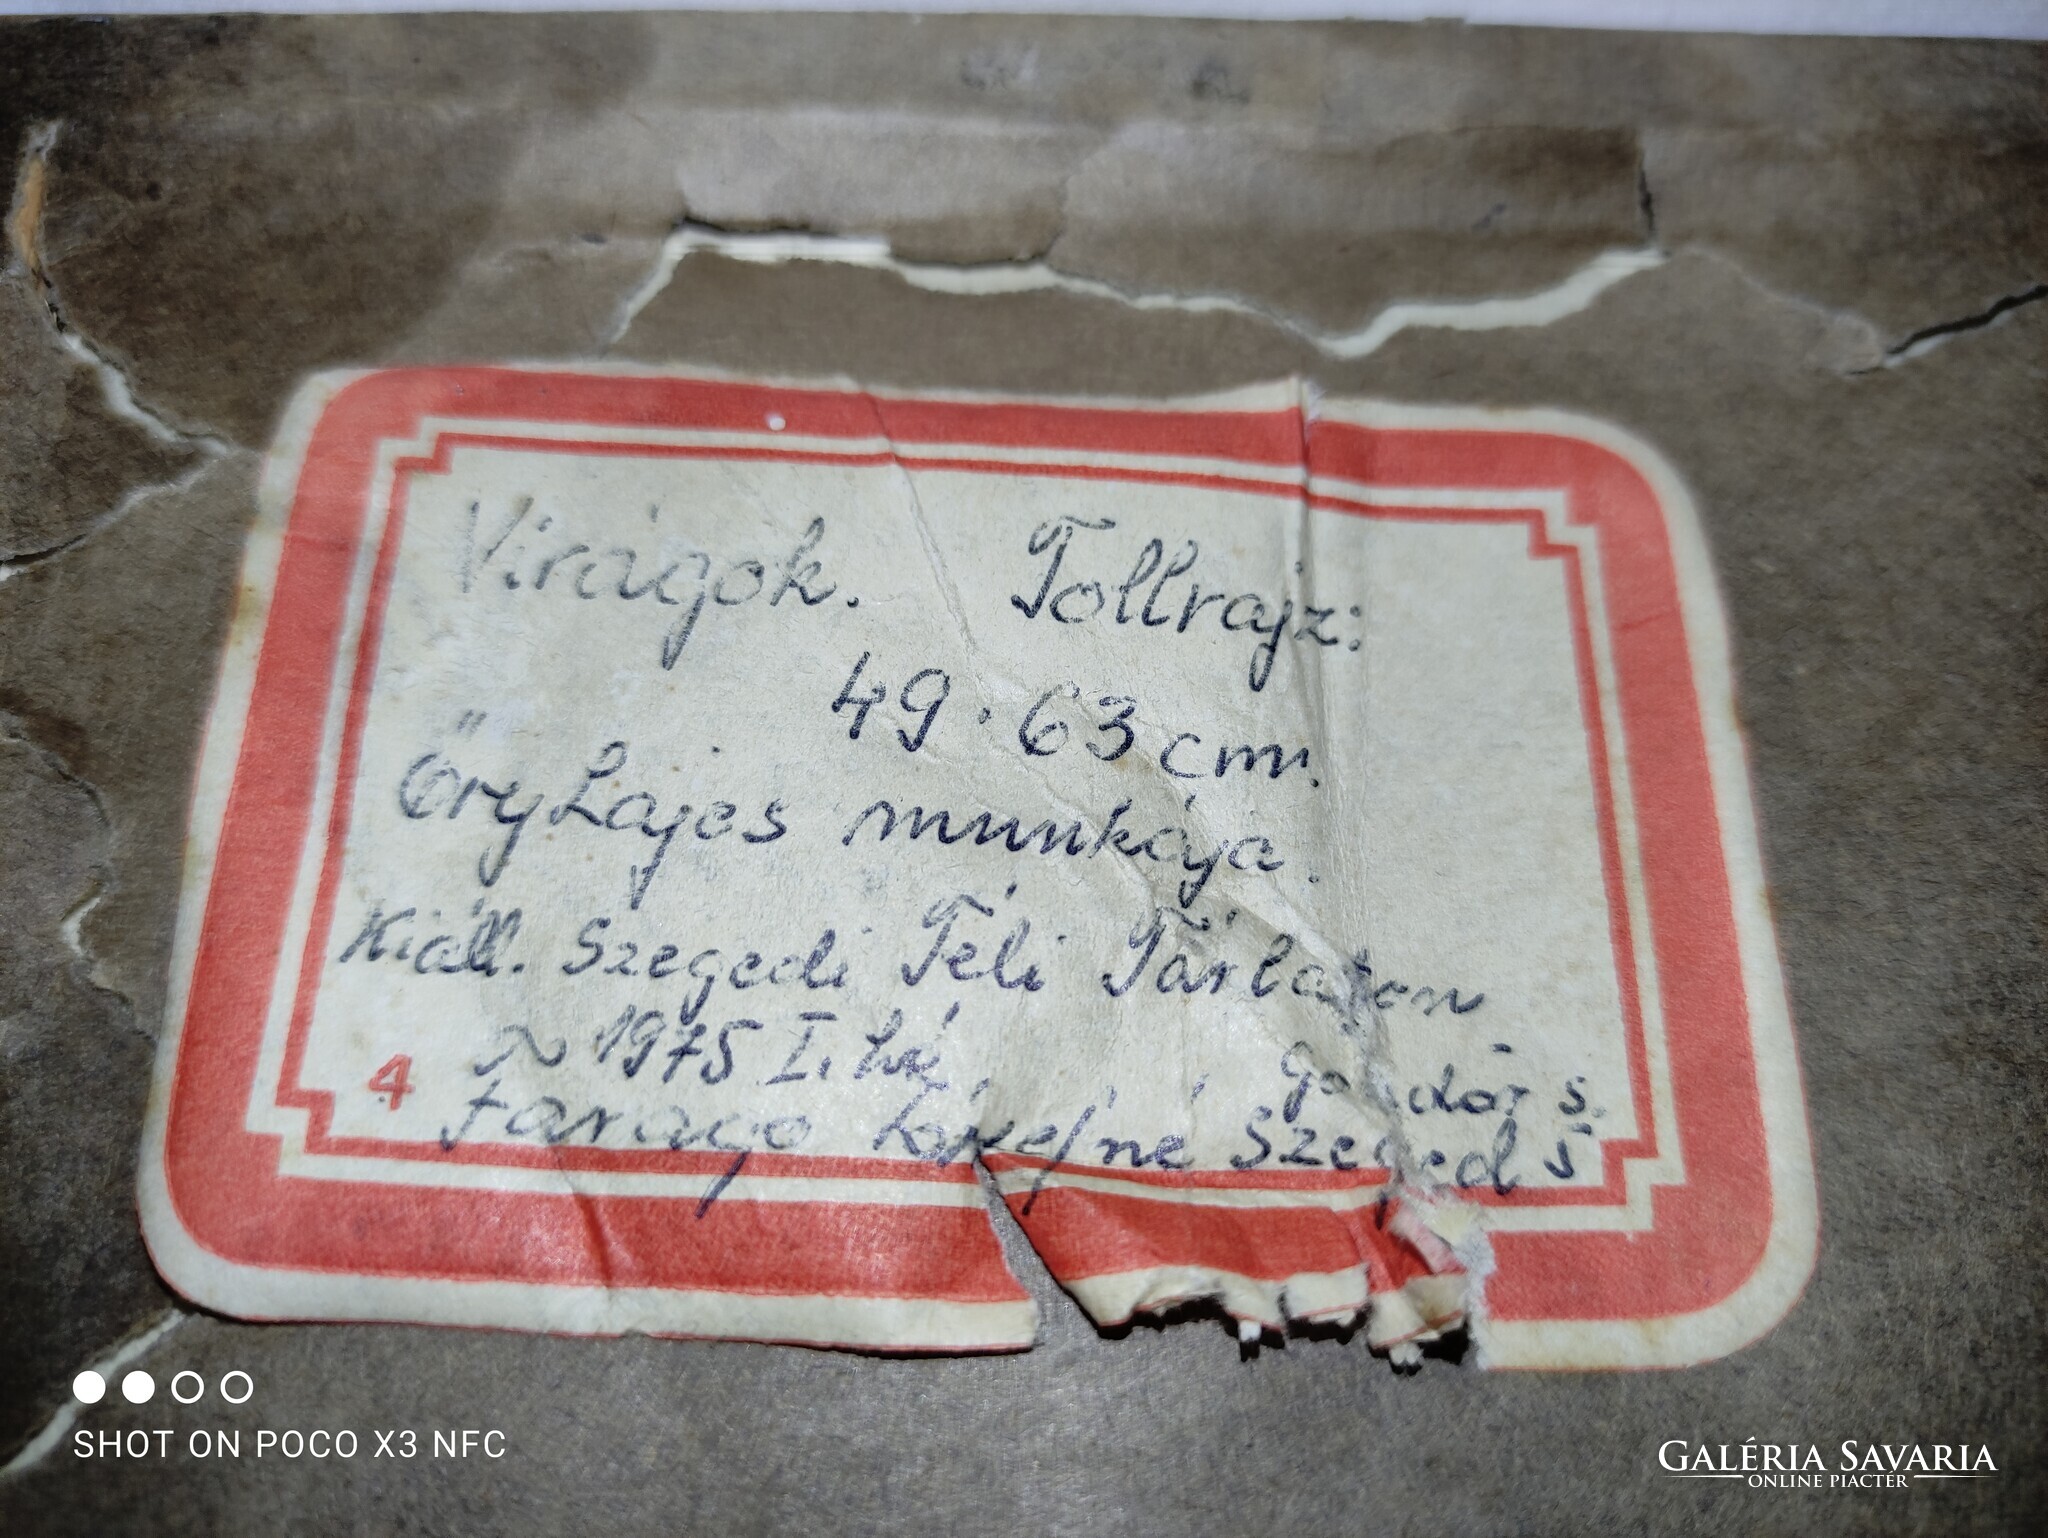 Virágok. Tollrajz:
49 · 63 cm.
Őry Lajos munkája.
Kiáll. Szegedi Téli Tárlaton
1975 I. hó
Faragó né Szeged
4
SHOT ON POCO X3 NFC
GALÉRIA SAVARIA
ONLINE PIACTÉR